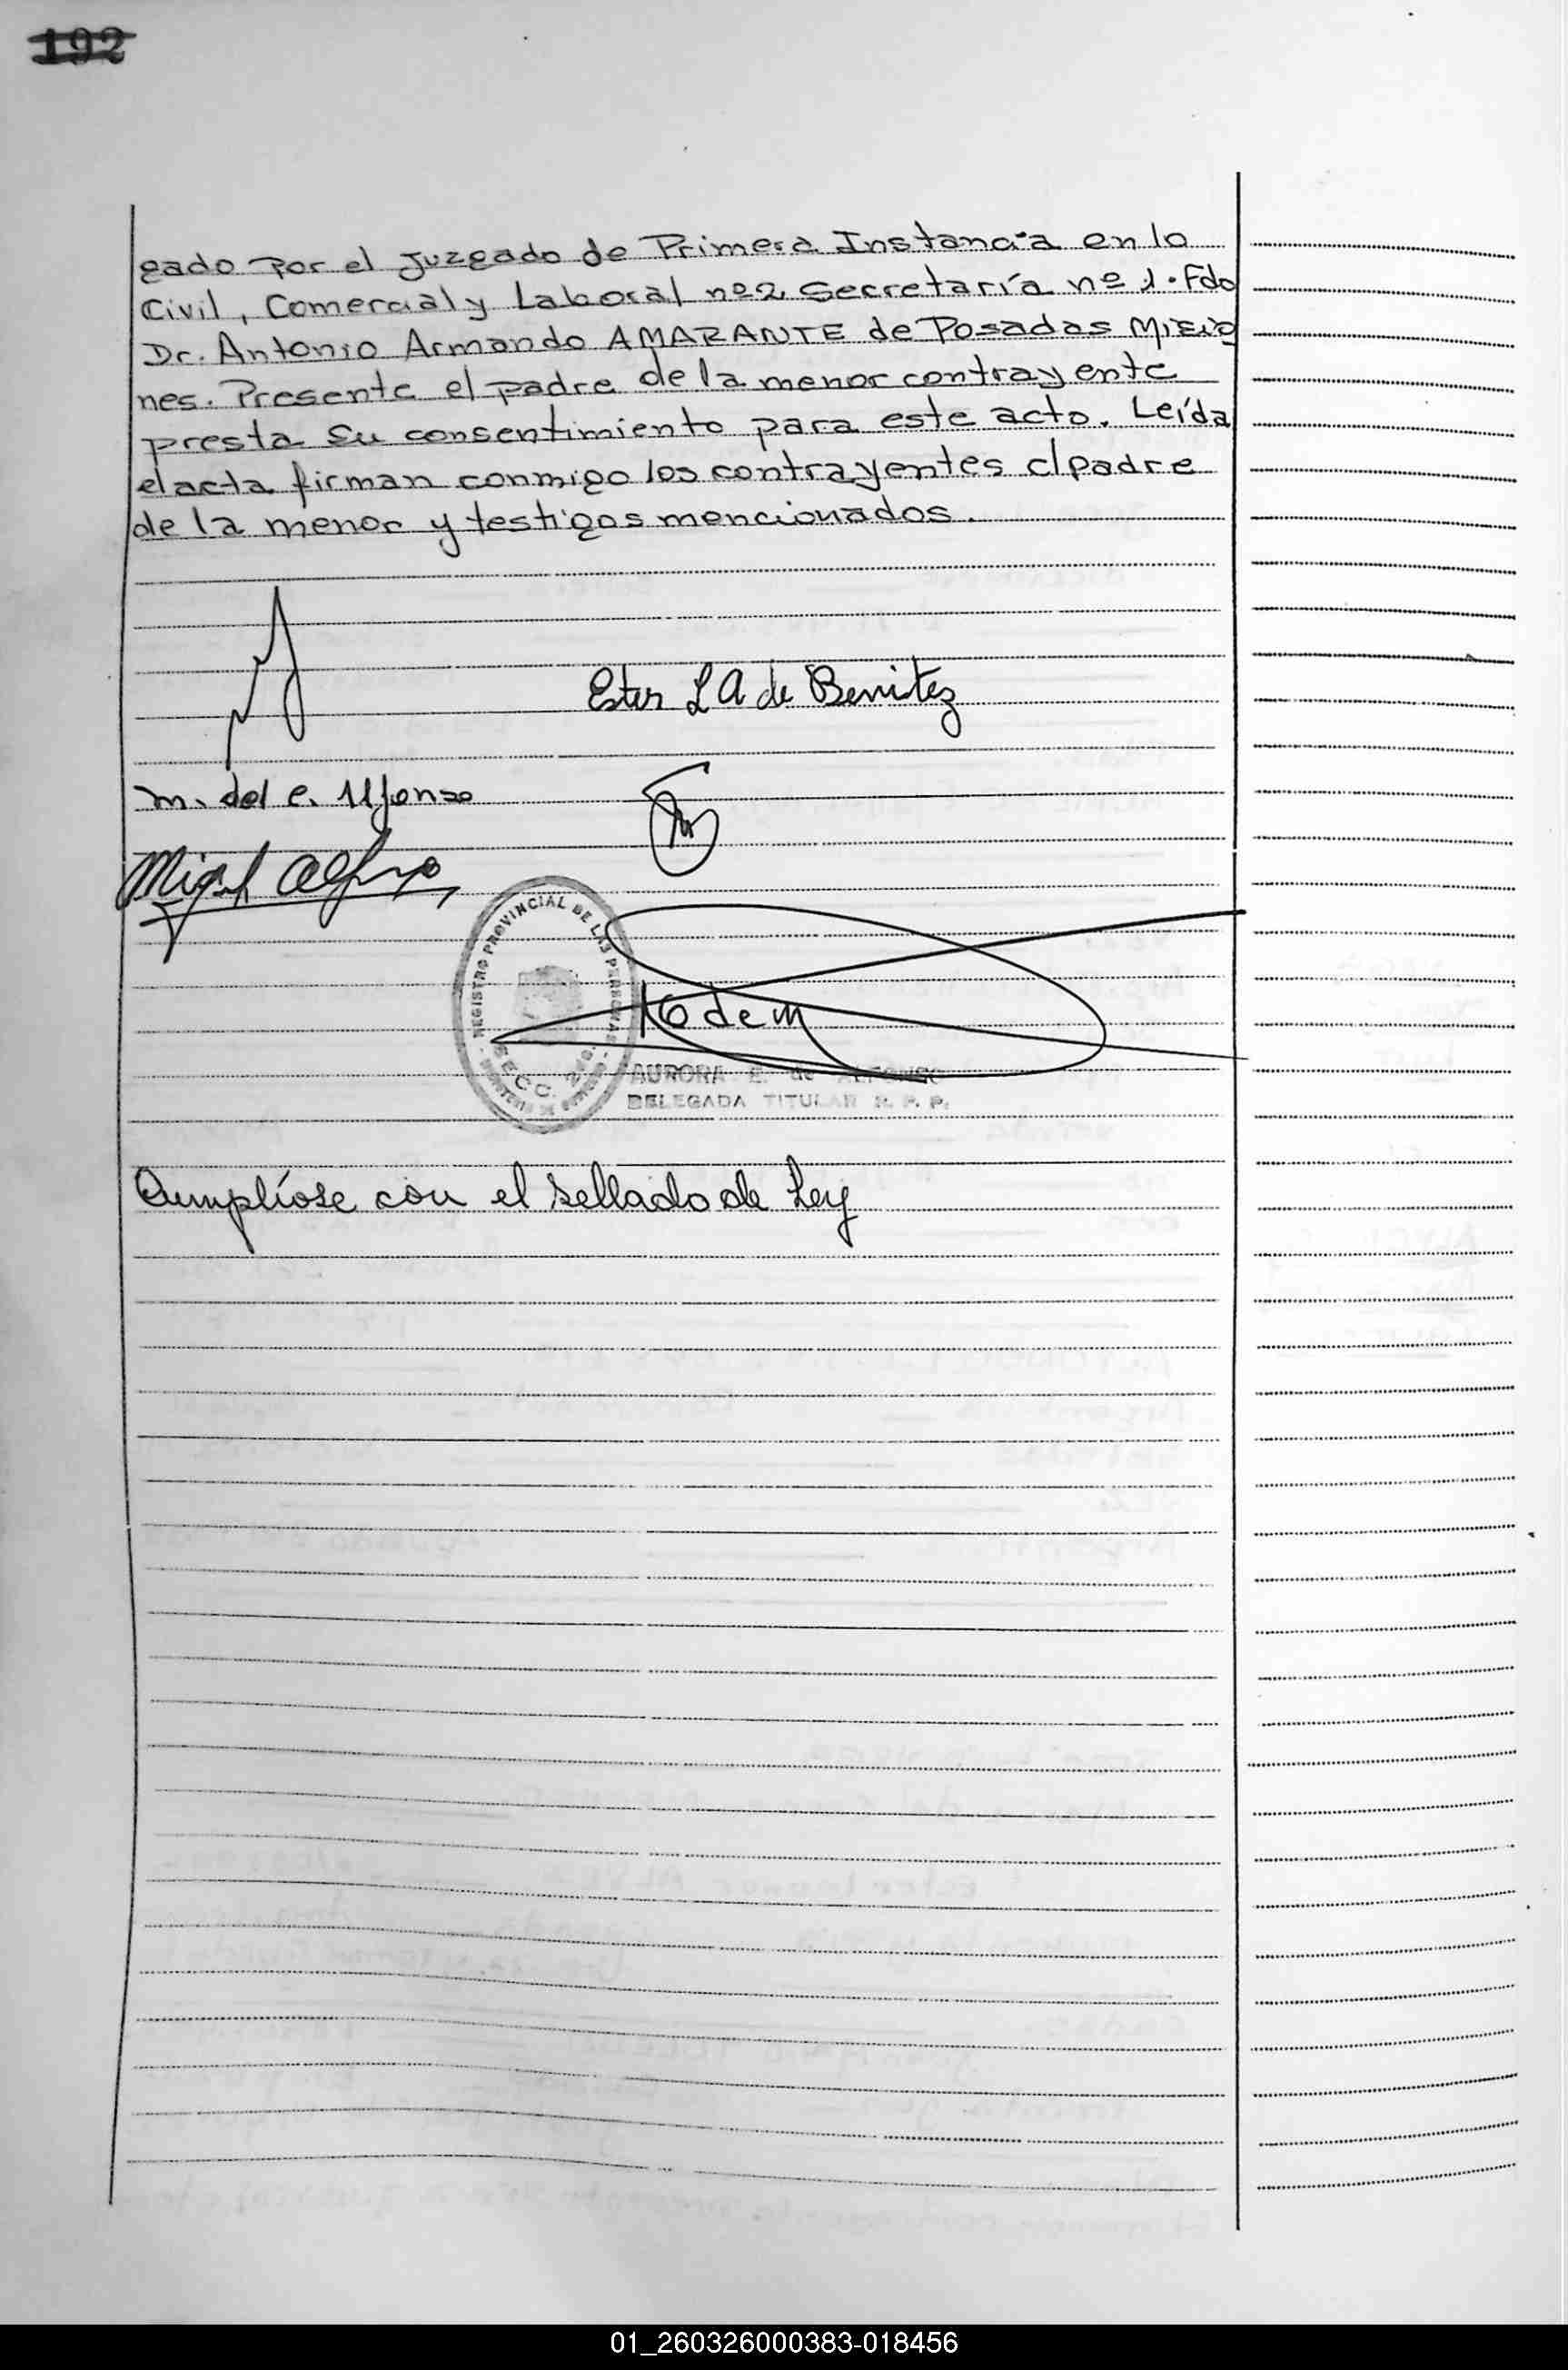 192
gado por el Juzgado de Primera Instancia en lo
Civil, Comercial y Laboral nº 2 Secretaría nº 1. Fdo
Dr. Antonio Armando AMARANTE de Posadas Misio
nes. Presente el padre de la menor contrayente
presta su consentimiento para este acto. Leída
el acta firman conmigo los contrayentes el padre
de la menor y testigos mencionados.
Ester L A de Benitez
m. del C. Alfonso
Miguel Alfonso
REGISTRO PROVINCIAL DE LAS PERSONAS
SECC.
AURORA E. de ALFONSO
DELEGADA TITULAR R. P. P.
Cumplíose con el sellado de Ley
01_260326000383-018456